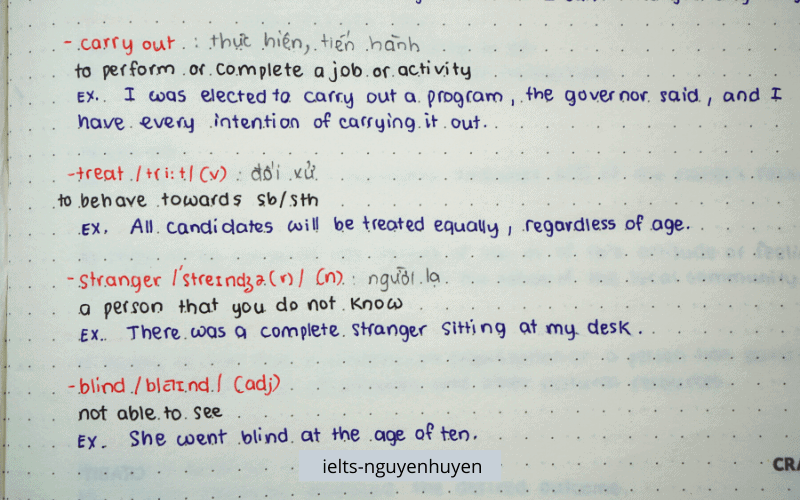 - carry out : thực hiện, tiến hành
to perform or complete a job or activity
EX. I was elected to carry out a program, the governor said, and I
have every intention of carrying it out.
- treat /triːt/ (v) : đối xử
to behave towards sb/sth
EX. All candidates will be treated equally, regardless of age.
- stranger /ˈstreɪndʒə(r)/ (n) : người lạ
a person that you do not know
EX. There was a complete stranger sitting at my desk.
- blind /blaɪnd/ (adj)
not able to see
EX. She went blind at the age of ten.
ielts-nguyenhuyen
CRA